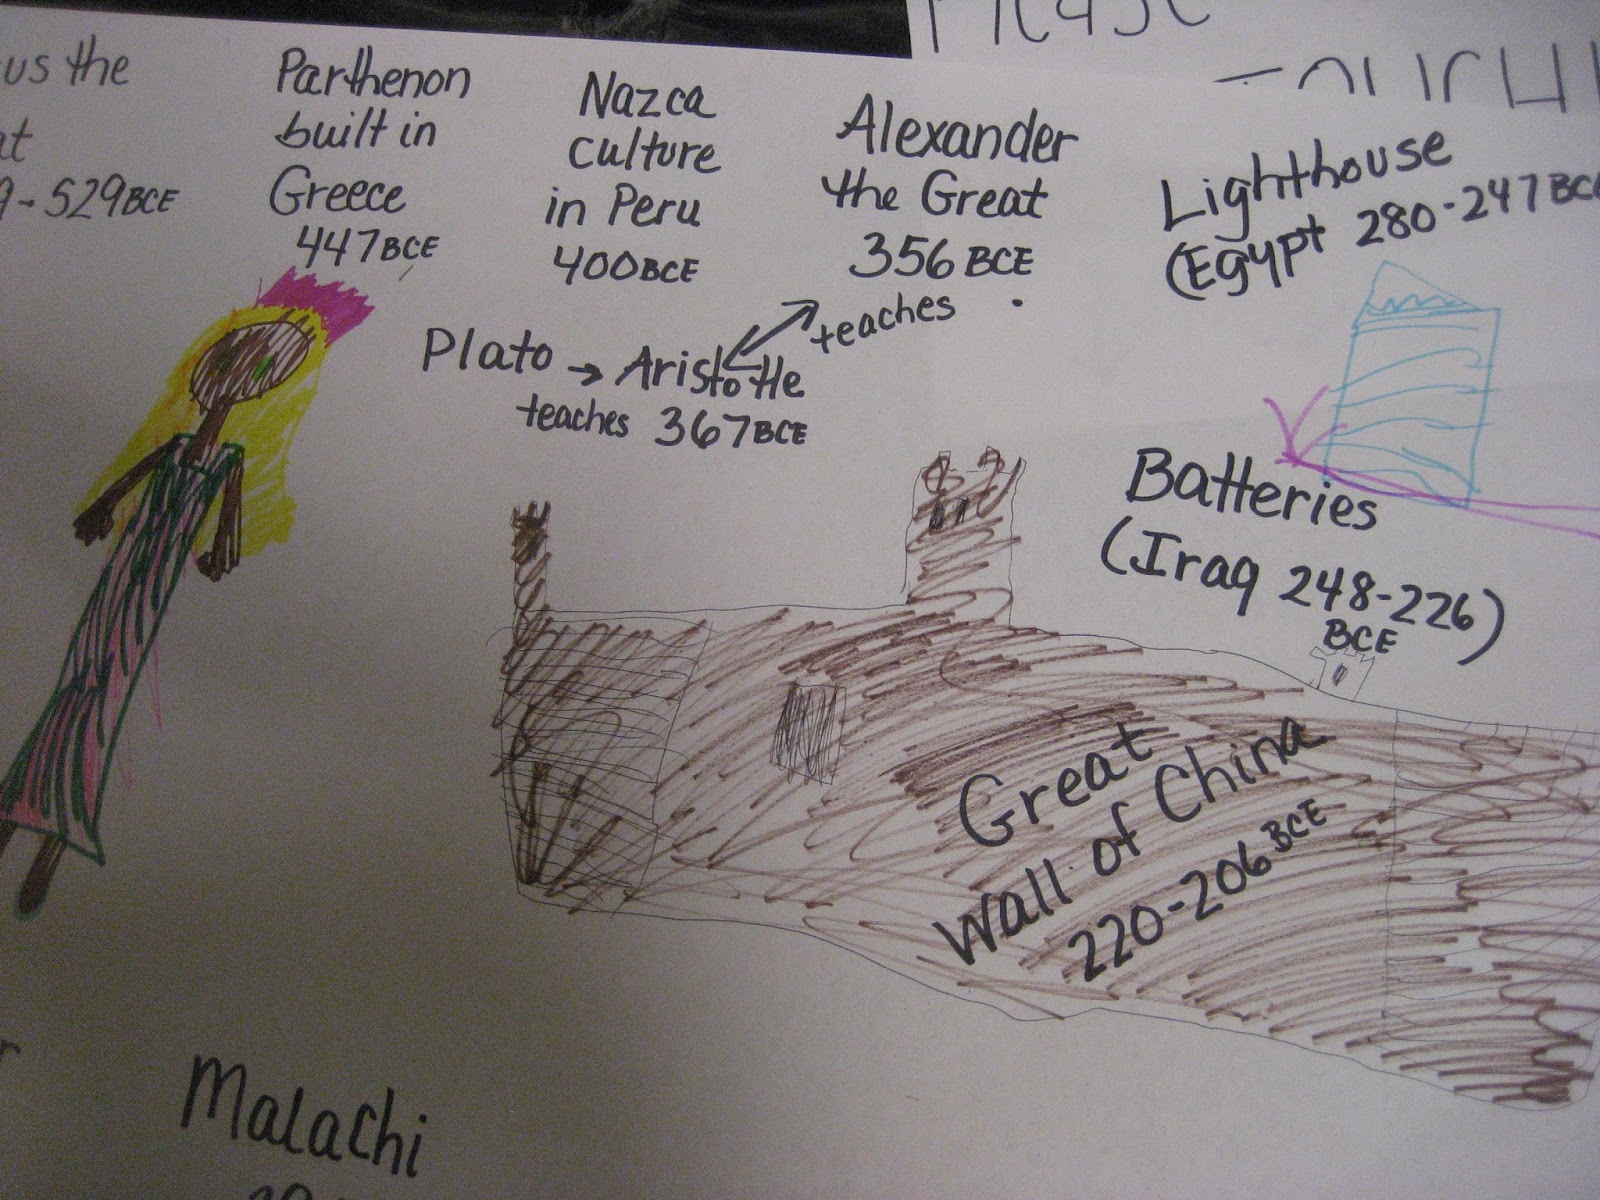 Please
us the
at
9-529 BCE
Parthenon
built in
Greece
447 BCE
Nazca
culture
in Peru
400 BCE
Alexander
the Great
356 BCE
Lighthouse
(Egypt 280-247 BCE
Plato → Aristotle
teaches 367 BCE
teaches
Batteries
(Iraq 248-226)
BCE
Great
Wall of China
220-206 BCE
Malachi